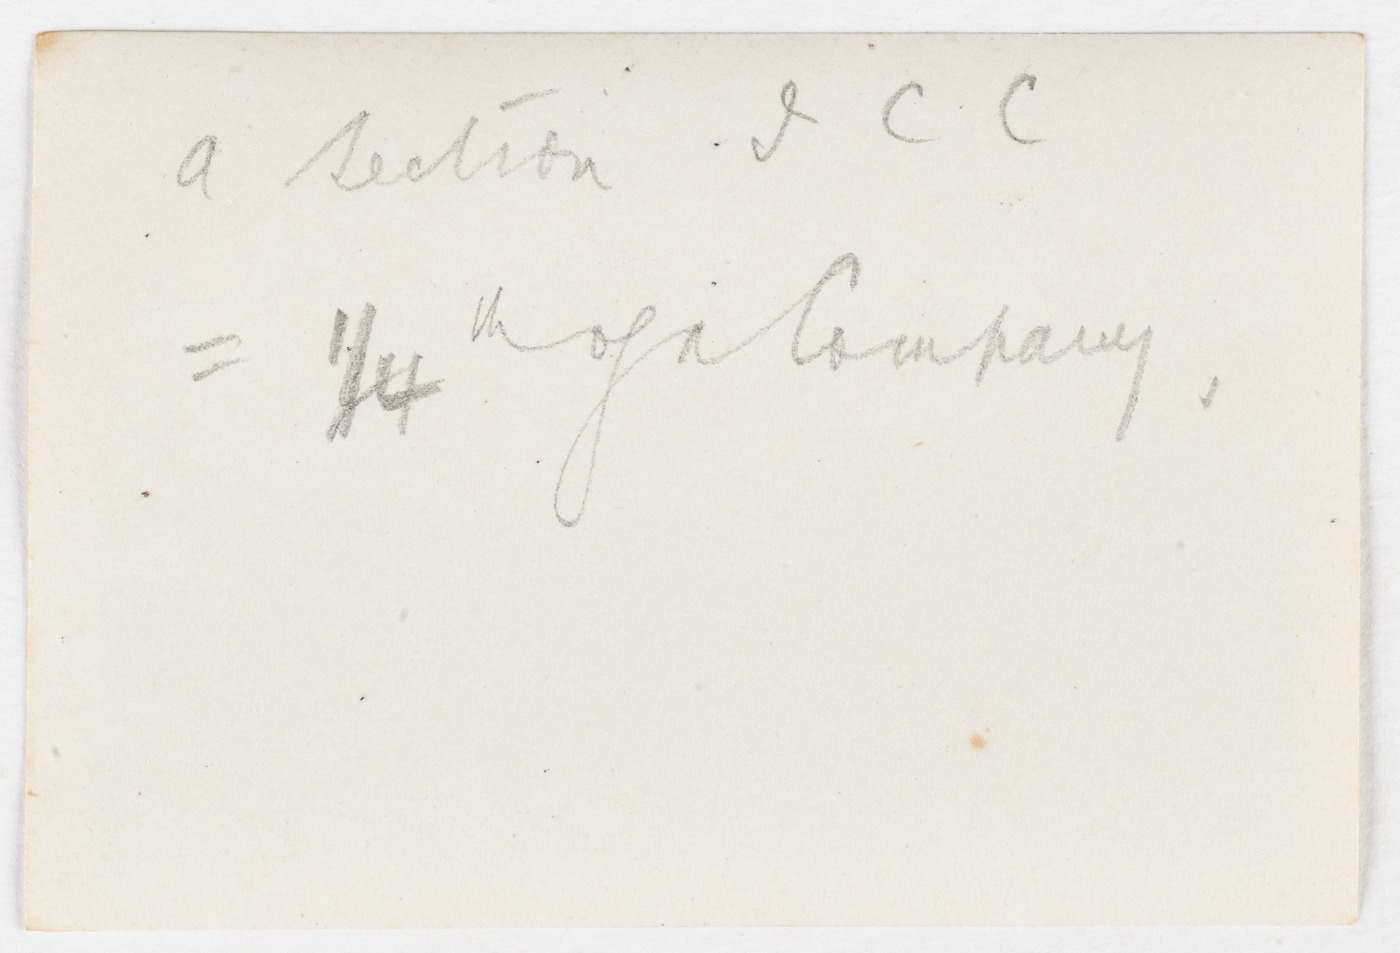 a section I C C
= 1/4 th of a Company,